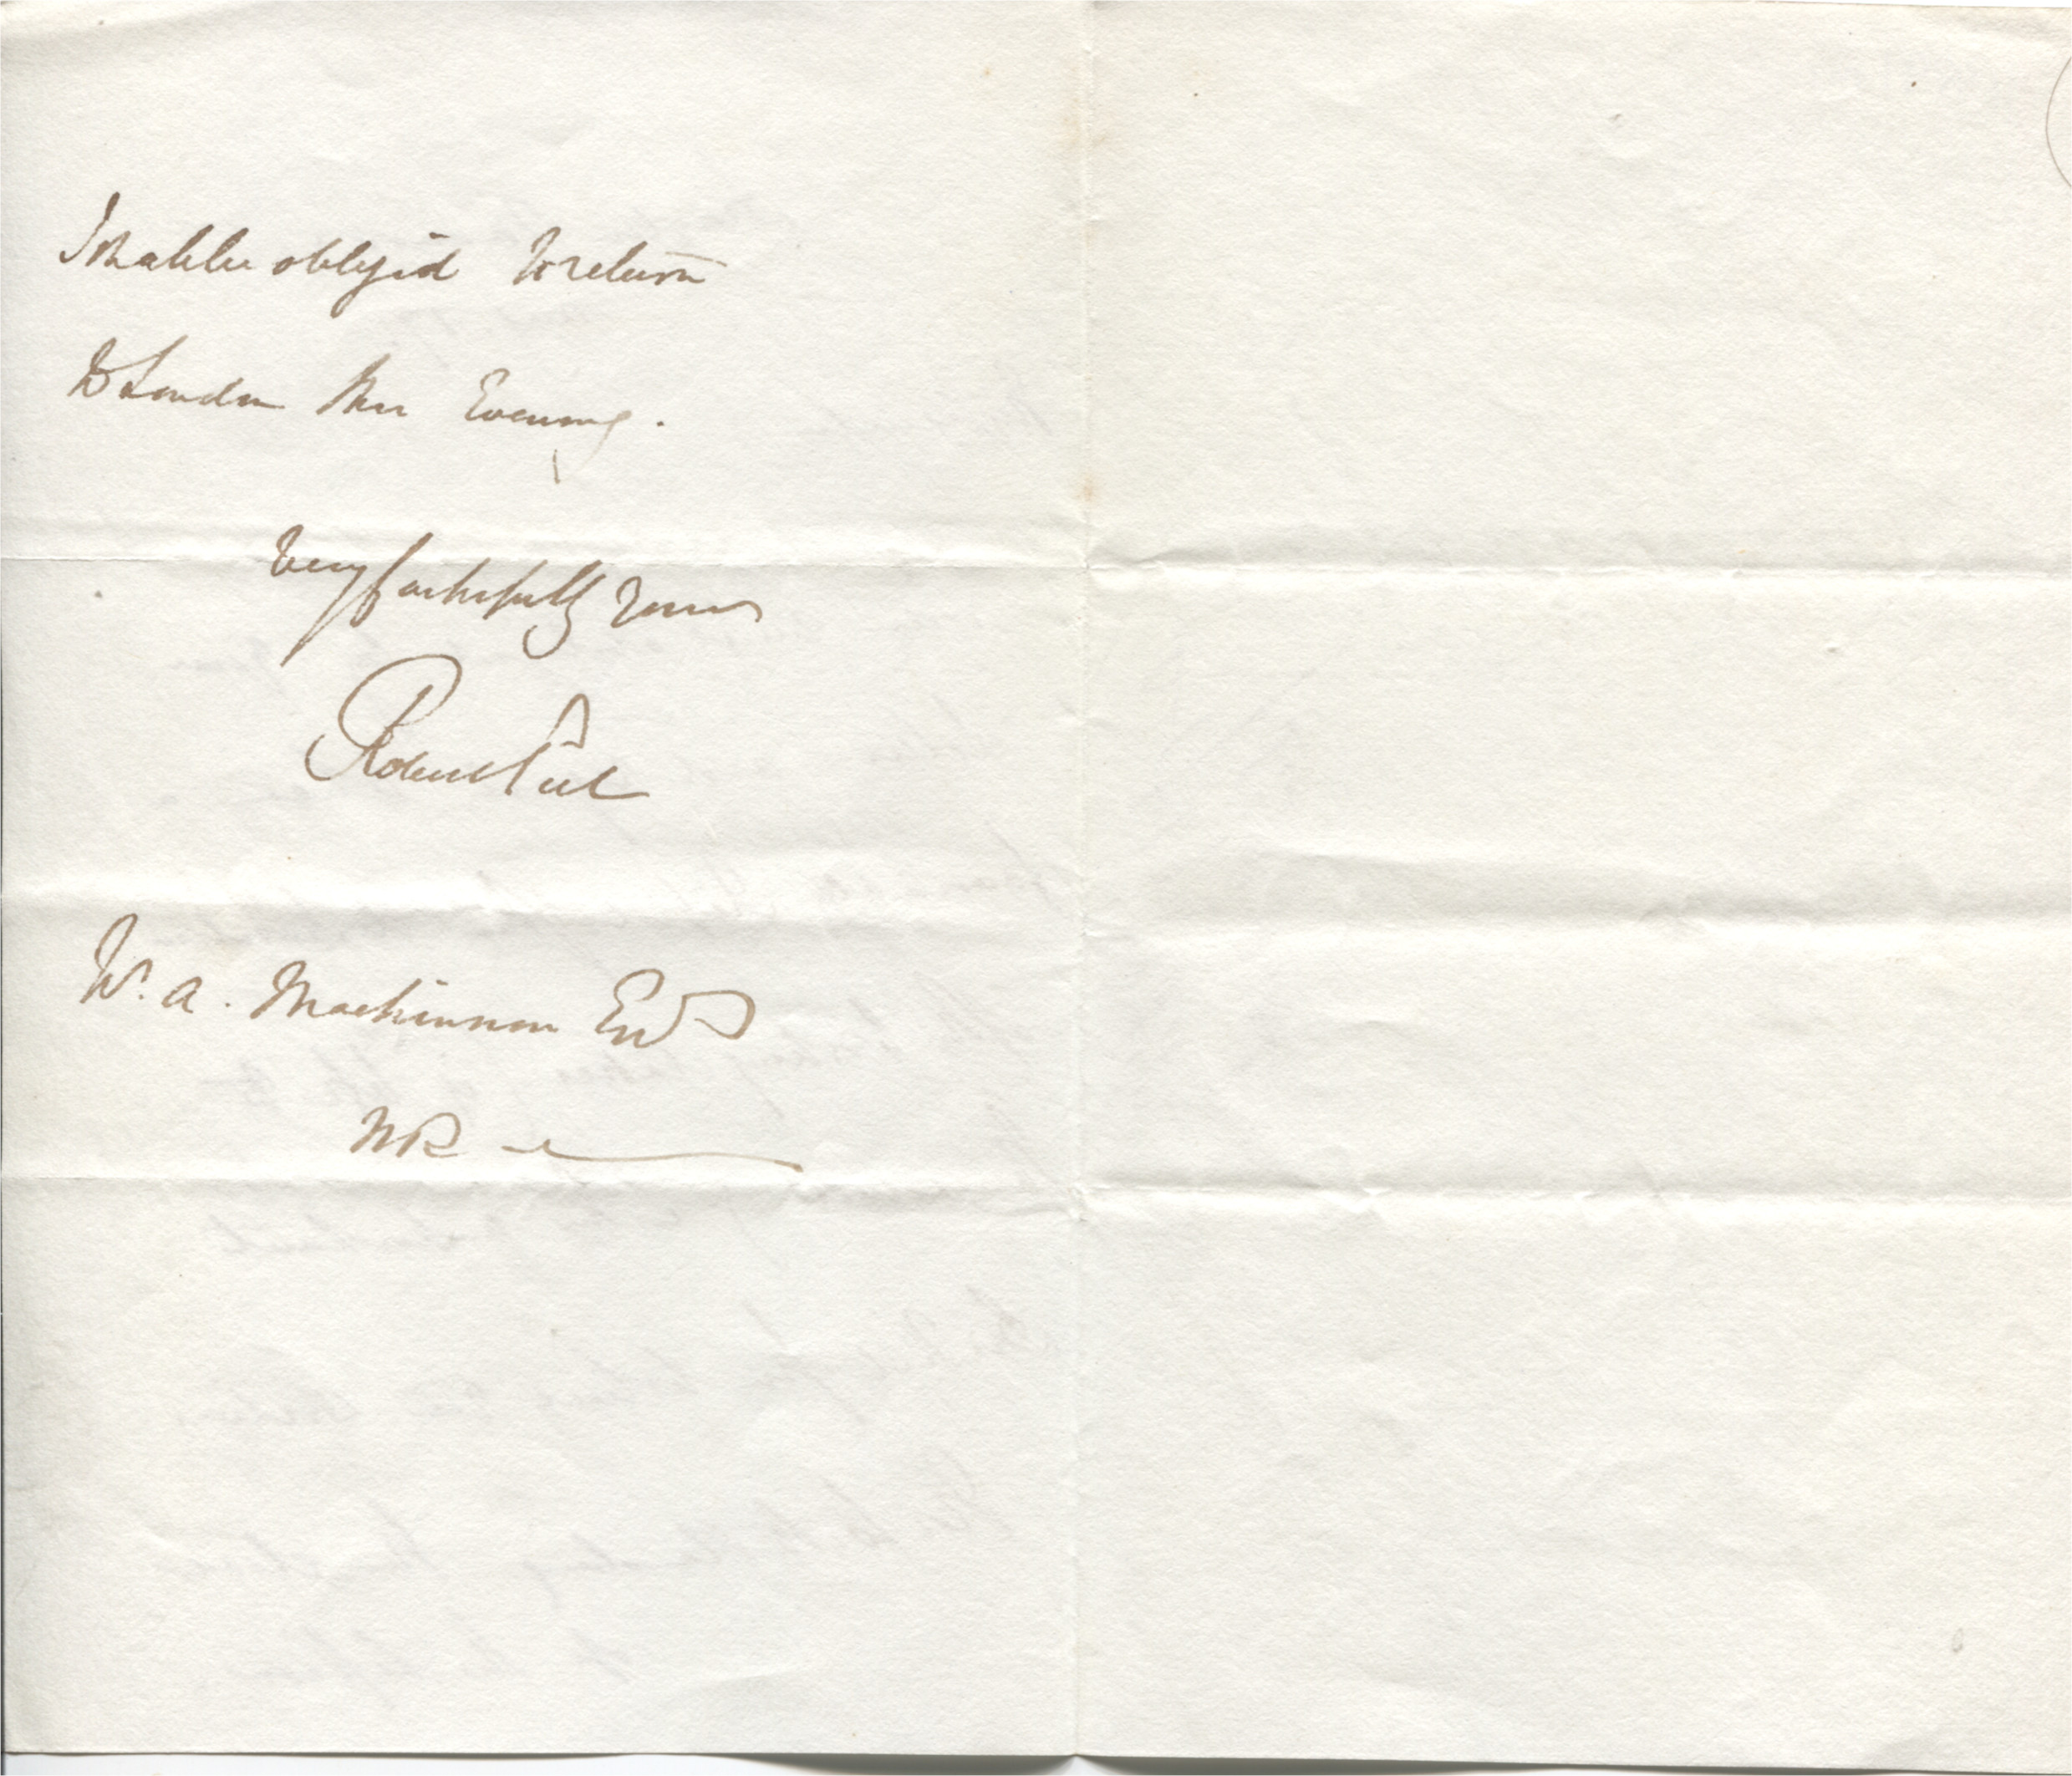 I shall be obliged to return
to London this Evening.
Very faithfully Yours
Robert Peel
W. A. Mackinnon Esq
MP